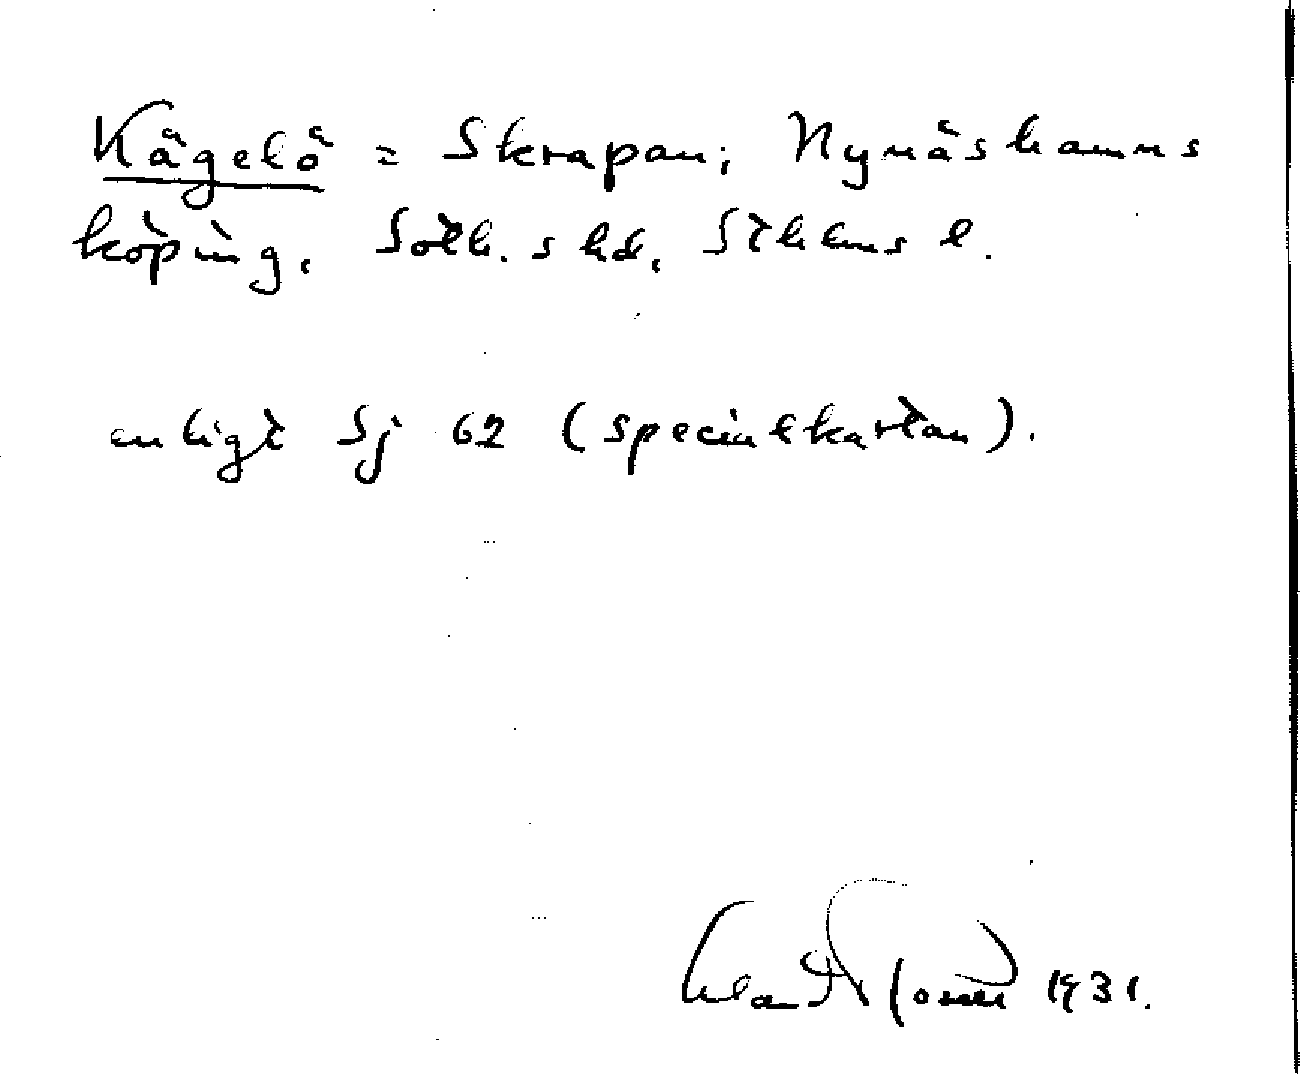 Kågelö = Skrapan; Nynäshamns
köping, Soth. s hd, Sthlms l.
enligt Sj 62 (specialkartan).
1931.